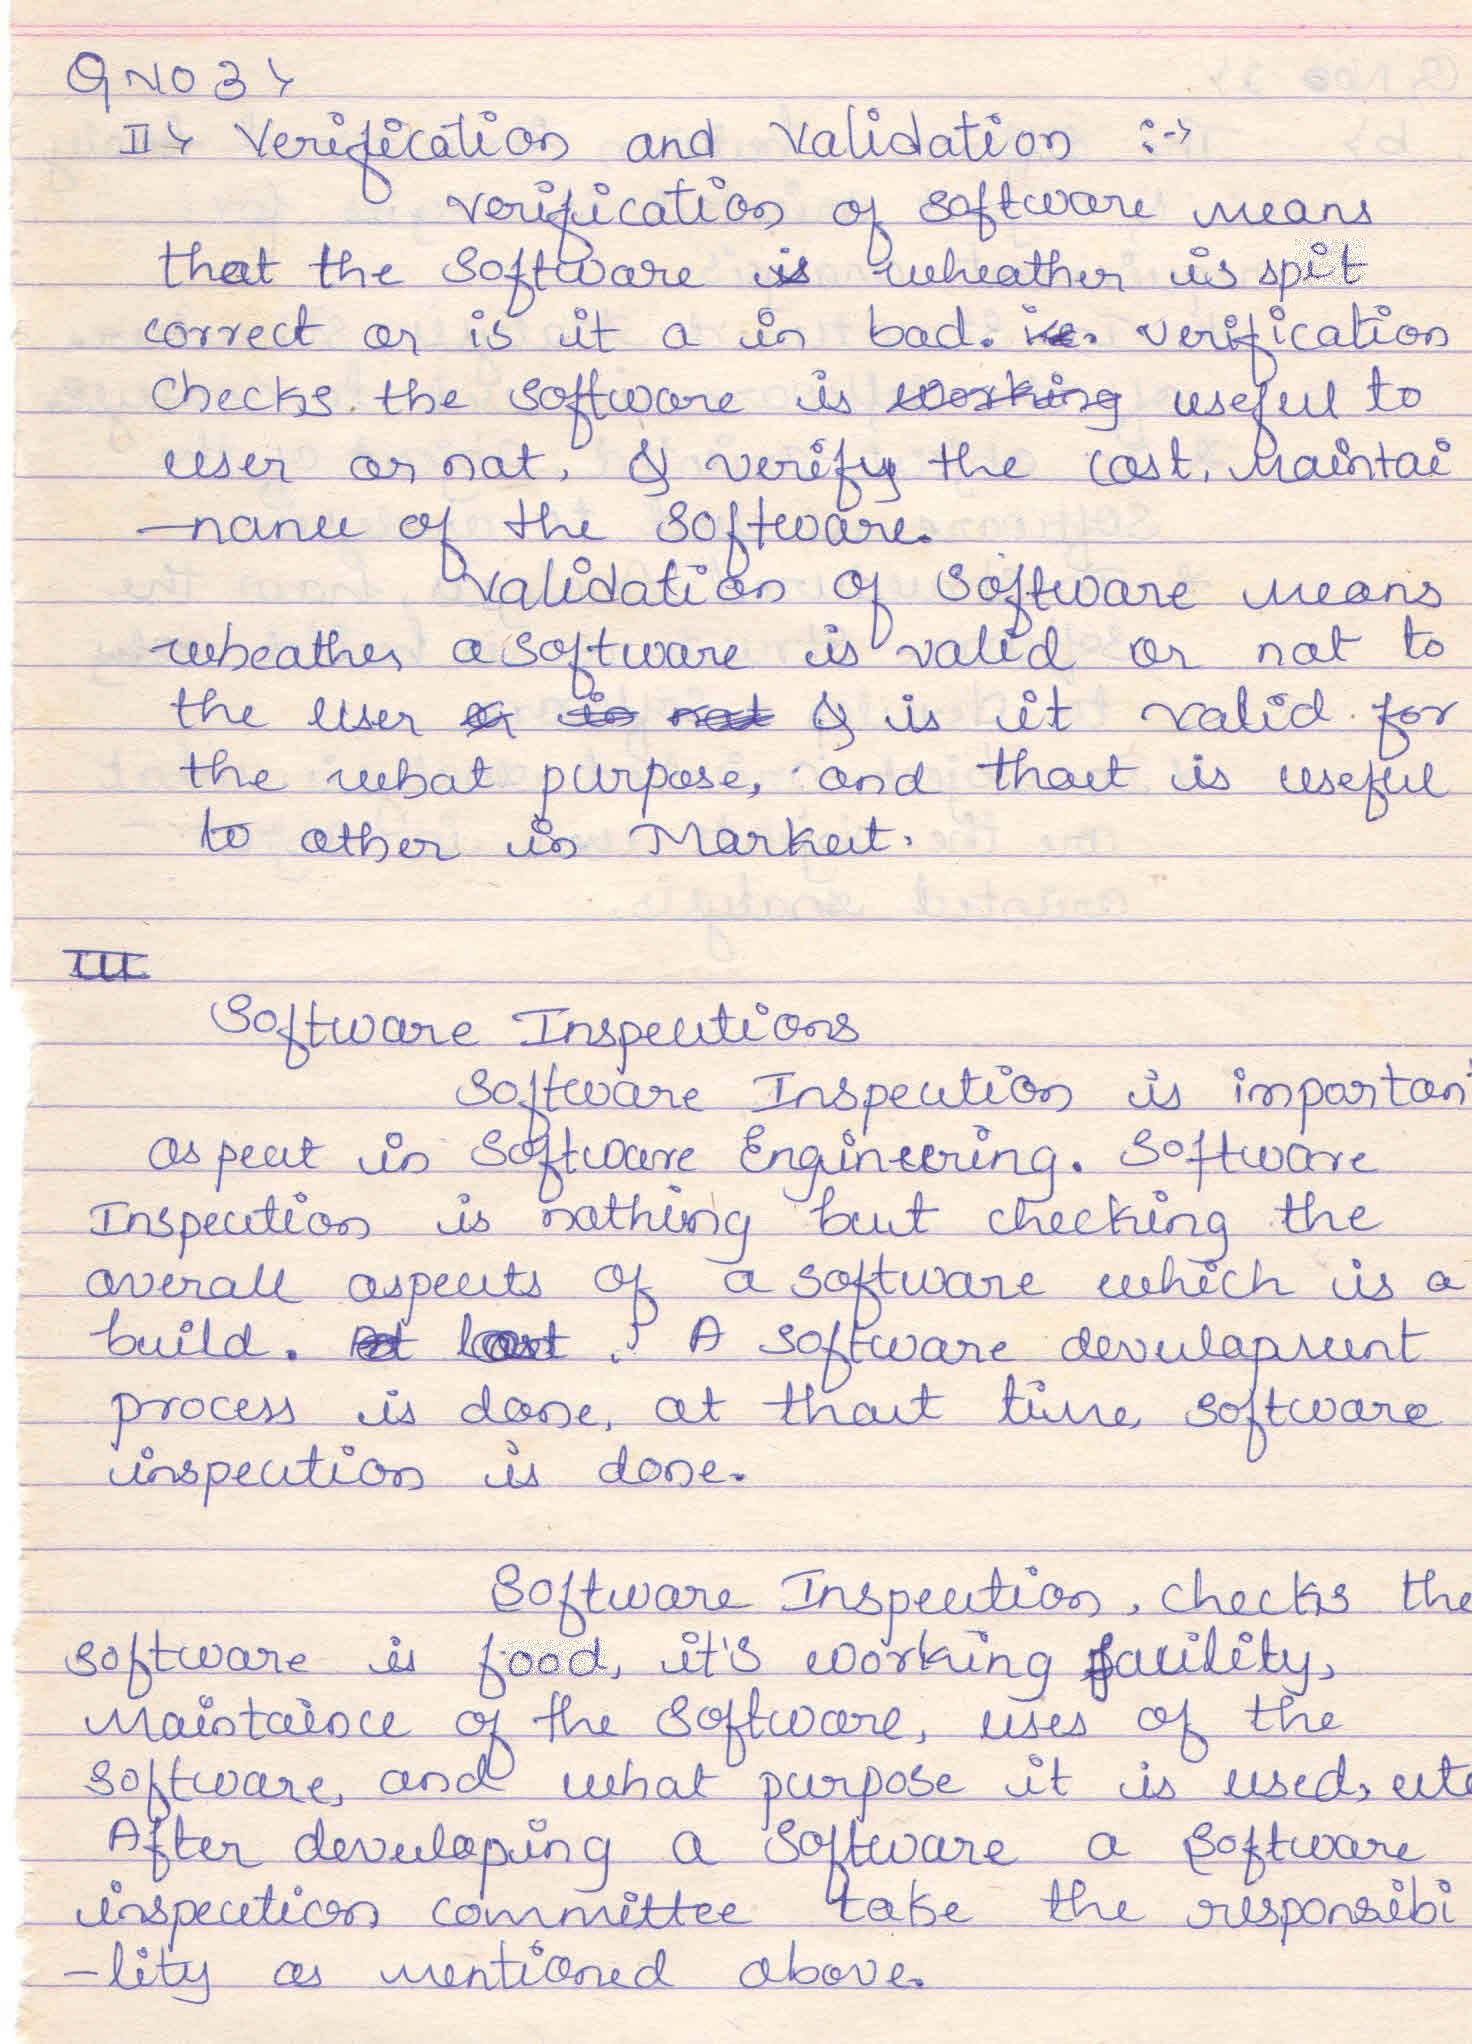 Q NO 3 >
II > Verification and Validation :->
Verification of software means
that the software is wheather is spit
correct or is it a in bad. i.e. verification
checks the software is working useful to
user or not, & verify the cost, Maintai
-nance of the software.
Validation of software means
wheather a software is valid or not to
the user or is not & is it valid for
the what purpose, and that is useful
to other in Market.
III
Software Inspections
Software Inspection is importan
aspect in Software Engineering. Software
Inspection is nothing but checking the
overall aspects of a software which is a
build. At last . A software development
process is done, at that time software
inspection is done.
Software Inspection, checks the
software is food, it's working facility,
Maintaince of the software, uses of the
software, and what purpose it is used, etc
After developing a software a software
inspection committee take the responsibi
-lity as mentioned above.